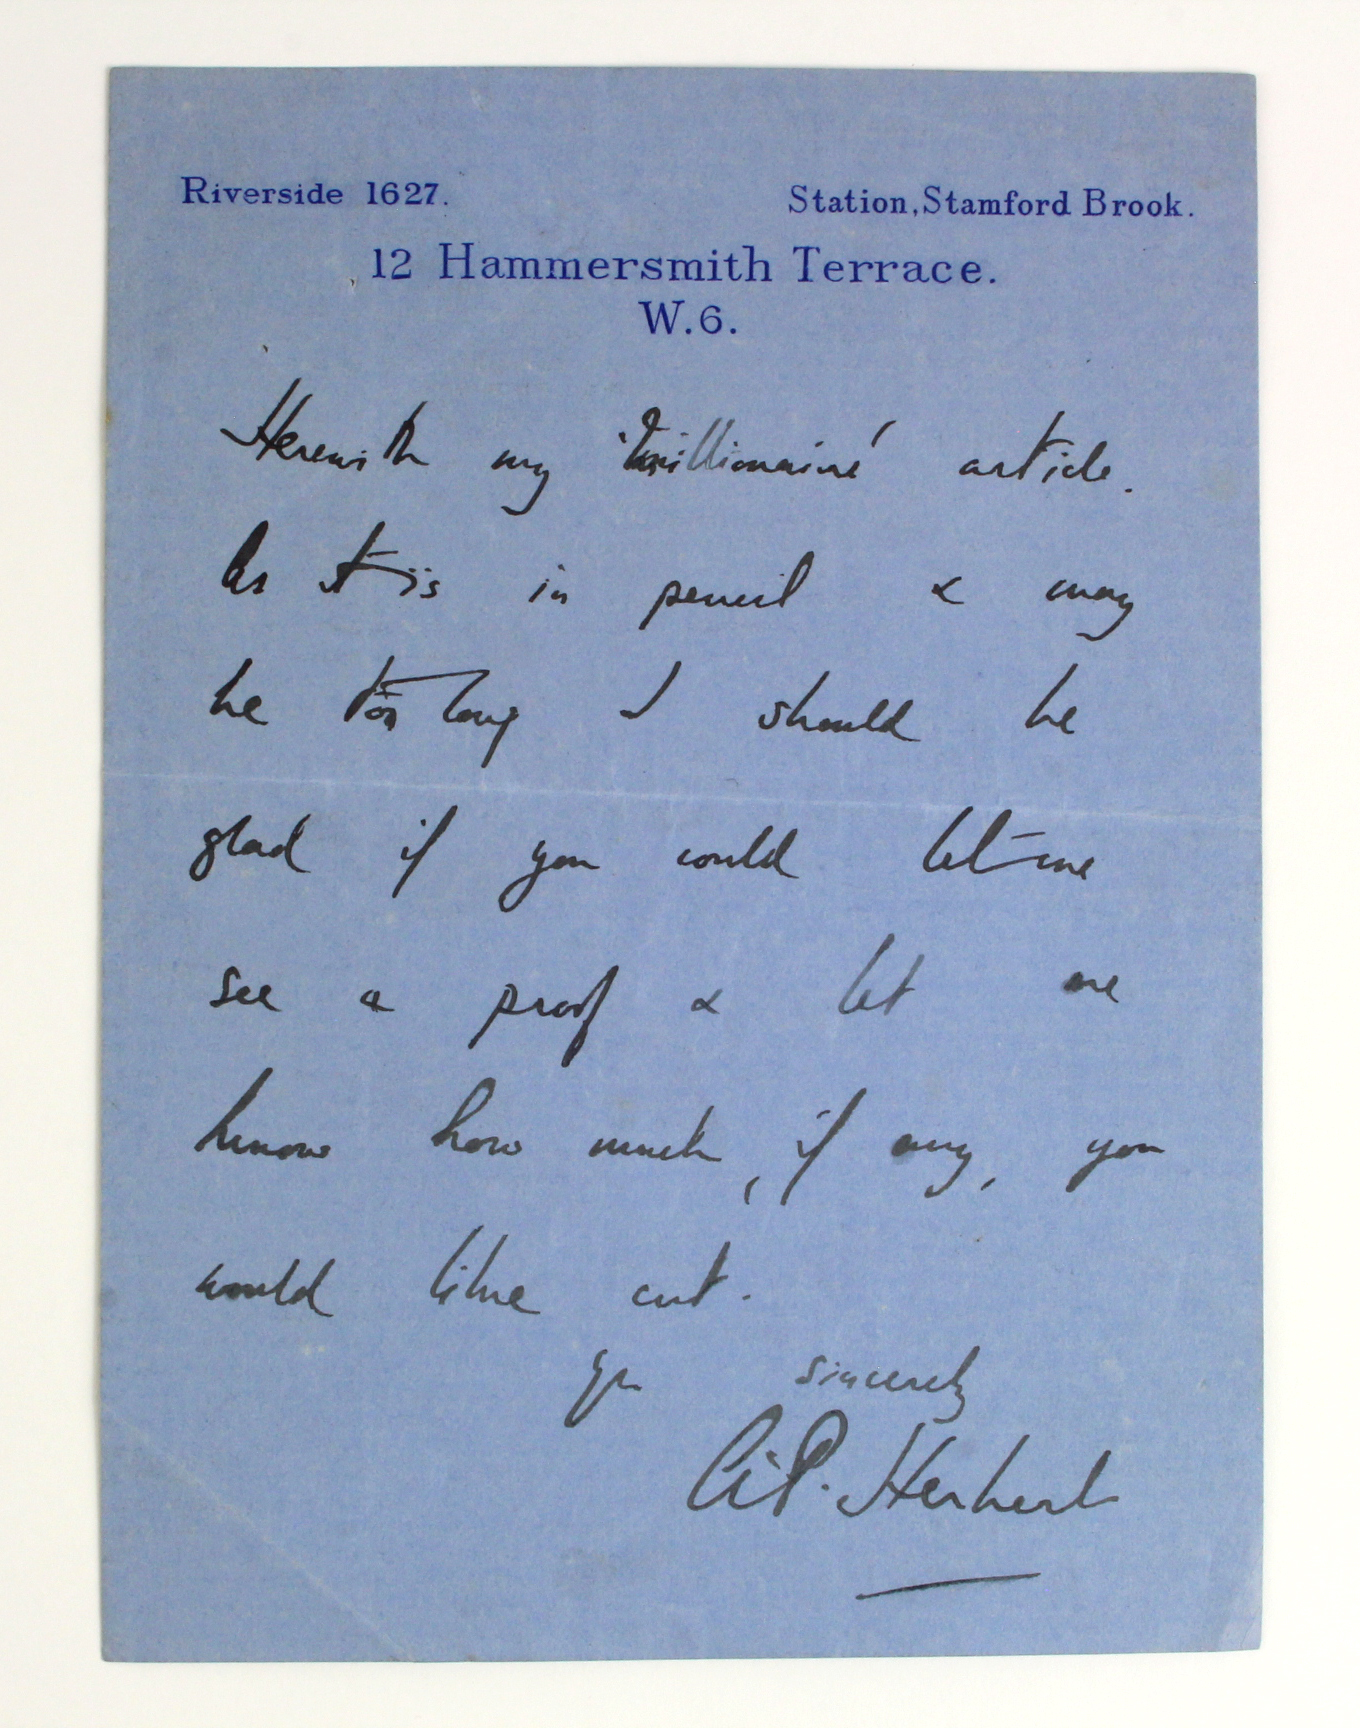 Riverside 1627.
Station, Stamford Brook.
12 Hammersmith Terrace.
W.6.
Herewith my 'Millionaire' article.
As it is in pencil & may
be too long I should be
glad if you could let me
see a proof & let me
know how much, if any, you
would like cut.
Yrs sincerely
A.P. Herbert